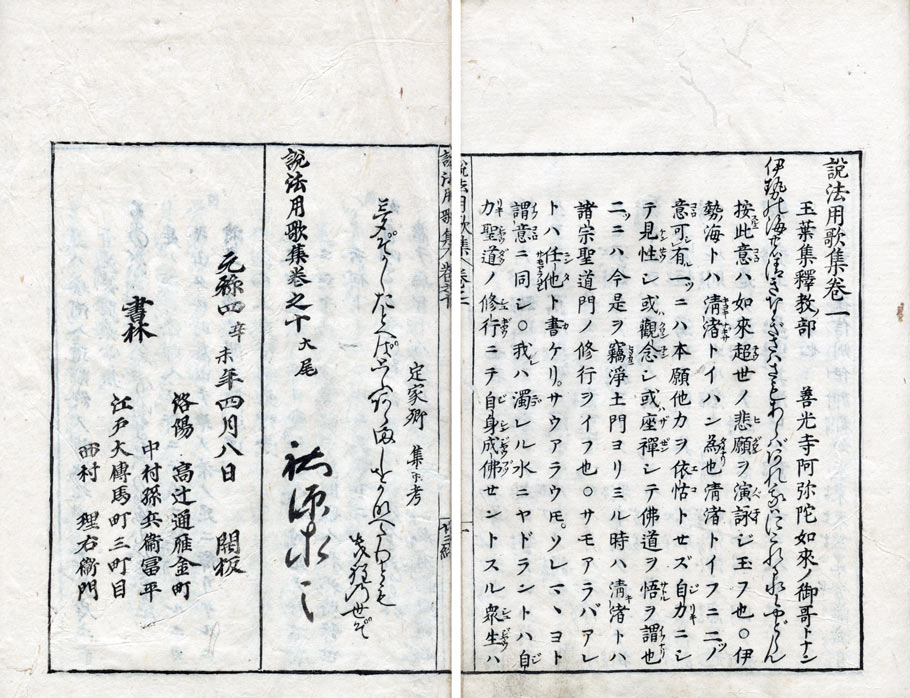 說法用歌集卷一
玉葉集釋教部 善光寺阿弥陀如來ノ御哥トナン
伊勢の海の
按此意ハ如來超世ノ悲願ヲ演詠ジ玉フ也○伊
勢海トハ清渚トイハン為也清渚トイフニ二ノ
意可有一ツニハ本願他力ヲ依怙トセズ自力ニシ
テ見性シ或觀念シ或座禪シテ佛道ヲ悟ヲ謂也
二ツニハ今是ヲ竊淨土門ヨリミル時ハ清渚トハ
諸宗聖道門ノ修行ヲイフ也○サモアラバアレ
トハ任他ト書ケリ。サウアラウトモ。ソレマヽヨト
謂意ニ同シ○我ハ濁レル水ニヤドラントハ自
力聖道ノ修行ニテ自身成佛セントスル衆生ハ
說法用歌集 卷之一
一
說法用歌集 卷之十
定家卿 集不考
說法用歌集卷之十大尾
元祿四辛未年四月八日 開板
洛陽 高辻通雁金町
中村孫兵衞冨平
書林
江戸大傳馬町三町目
西村 理右衞門